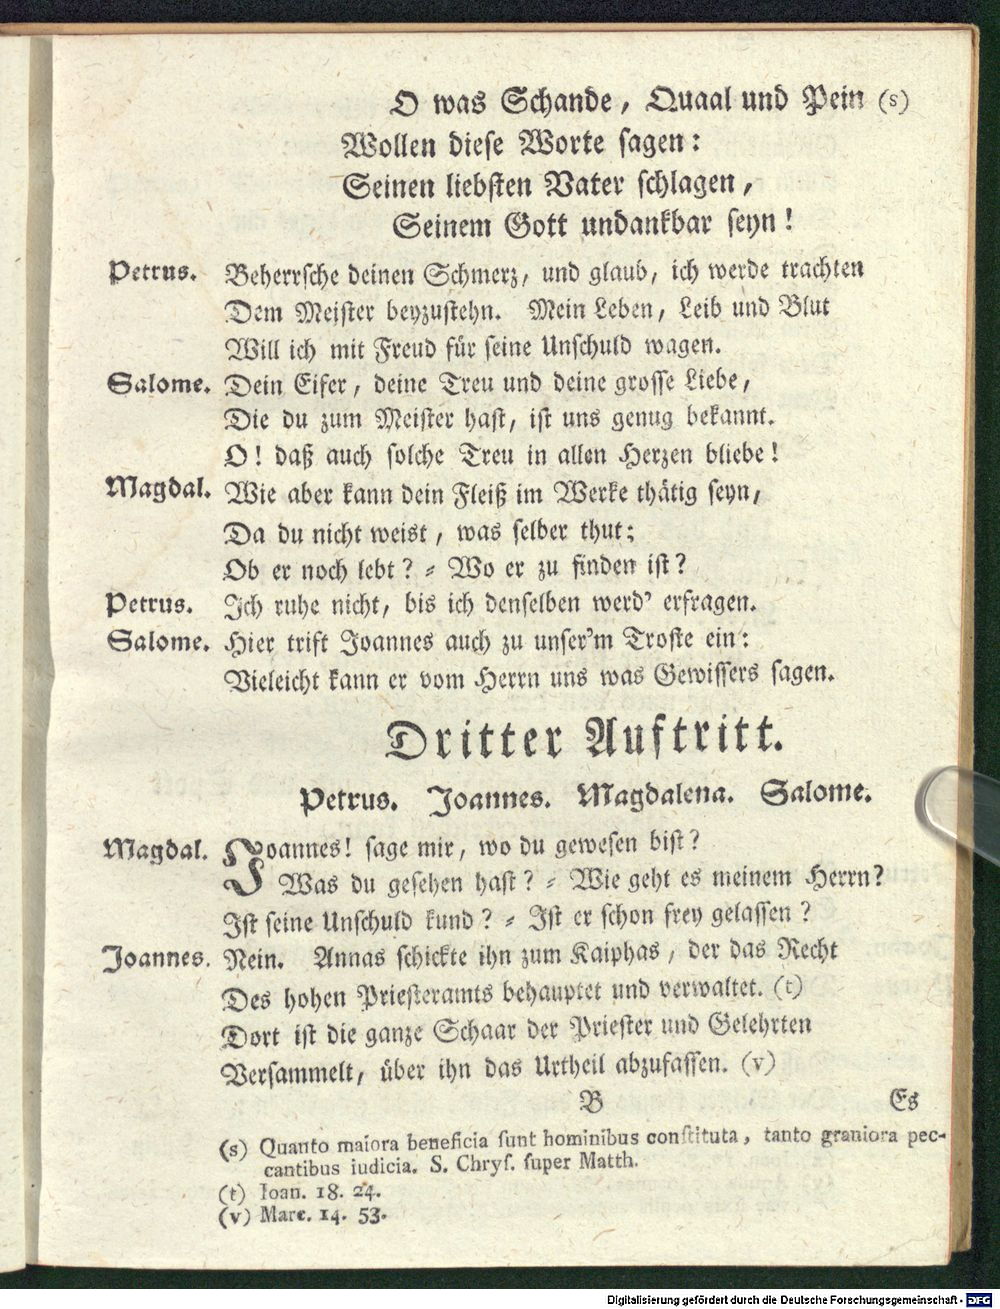 O was Schande, Quaal und Pein (s)
Wollen diese Worte sagen:
Seinen liebsten Vater schlagen,
Seinem Gott undankbar seyn!
Petrus. Beherrsche deinen Schmerz, und glaub, ich werde trachten
Dem Meister beyzustehn. Mein Leben, Leib und Blut
Will ich mit Freud für seine Unschuld wagen.
Salome. Dein Eifer, deine Treu und deine grosse Liebe,
Die du zum Meister hast, ist uns genug bekannt.
O! daß auch solche Treu in allen Herzen bliebe!
Magdal. Wie aber kann dein Fleiß im Werke thätig seyn,
Da du nicht weist, was selber thut;
Ob er noch lebt? - Wo er zu finden ist?
Petrus. Ich ruhe nicht, bis ich denselben werd' erfragen.
Salome. Hier trift Joannes auch zu unser'm Troste ein:
Vieleicht kann er vom Herrn uns was Gewissers sagen.
Dritter Auftritt.
Petrus. Joannes. Magdalena. Salome.
Magdal. Joannes! sage mir, wo du gewesen bist?
Was du gesehen hast? - Wie geht es meinem Herrn?
Ist seine Unschuld kund? - Ist er schon frey gelassen?
Joannes. Nein. Annas schickte ihn zum Kaiphas, der das Recht
Des hohen Priesteramts behauptet und verwaltet. (t)
Dort ist die ganze Schaar der Priester und Gelehrten
Versammelt, über ihn das Urtheil abzufassen. (v)
B Es
(s) Quanto maiora beneficia sunt hominibus constituta, tanto graniora pec-
cantibus iudicia. S. Chrys. super Matth.
(t) Ioan. 18. 24.
(v) Marc. 14. 53.
Digitalisierung gefördert durch die Deutsche Forschungsgemeinschaft - DFG